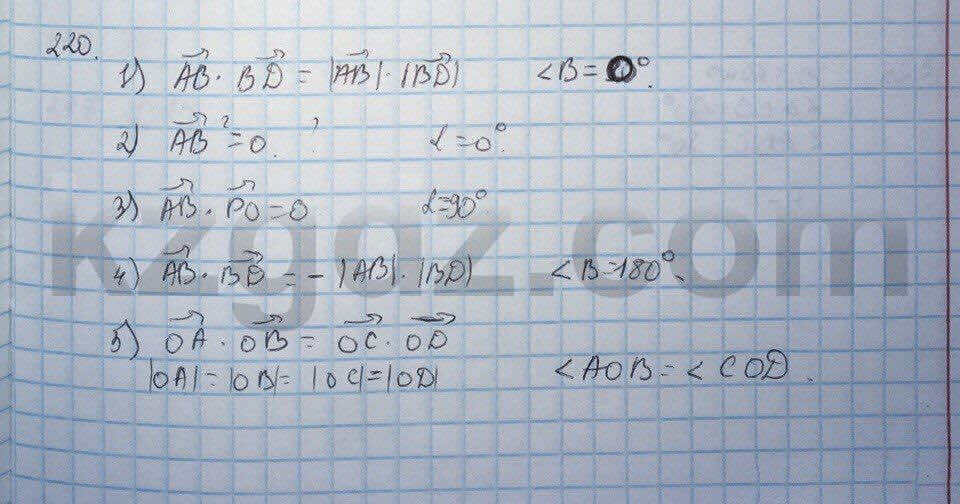 220.
1) AB⃗ · BD⃗ = |AB⃗| · |BD⃗| <B = 0°.
2) AB⃗ ² = 0. ? α = 0°.
3) AB⃗ · PO⃗ = 0 α = 90°
4) AB⃗ · BD⃗ = - |AB| · |BD| <B = 180°.
5) OA⃗ · OB⃗ = OC⃗ · OD⃗
|OA| = |OB| = |OC| = |OD| <AOB = <COD.
kzgaz.com